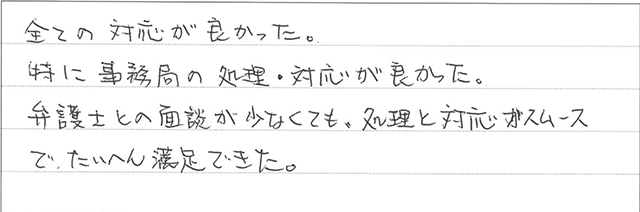 全ての対応が良かった。
特に事務局の処理・対応が良かった。
弁護士との面談が少なくても、処理と対応がスムース
で、たいへん満足できた。